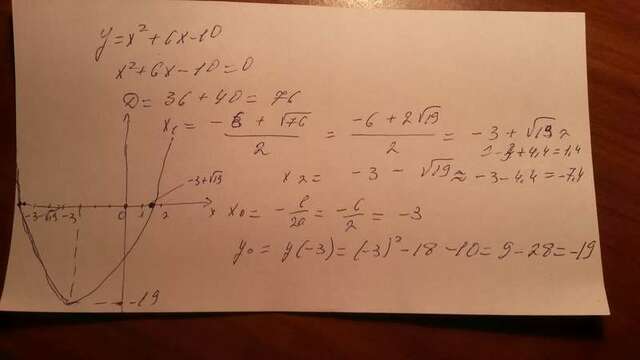 y=x²+6x-10
x²+6x-10=0
D= 36+40= 76
x₁= (-6 + √76)/2 = (-6 + 2√19)/2 = -3 + √19 ≈
≈ -3+4,4=1,4
x₂= -3 - √19 ≈ -3-4,4=-7,4
x₀= -b/2a = -6/2 = -3
y₀ = y(-3)=(-3)²-18-10=9-28=-19
-3+√19
-3-√19 -3 0 1 2 x
-19